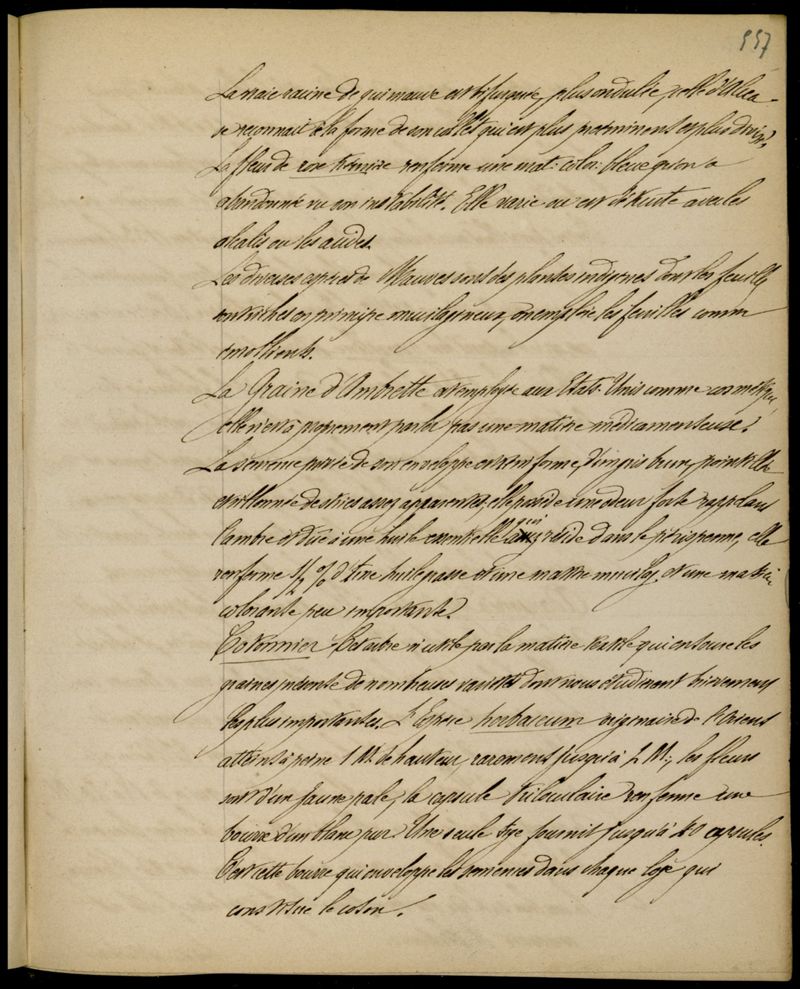 557
La vraie racine de guimauve est bifurquée, plus ondulée, celle d'Alcea
se reconnait à la forme de son collet qui est plus proéminent et plus divisé,
La fleur de rose trémière renferme une mat. color. bleue qu'on a
abandonnée vu son instabilité. Elle varie ou est détruite avec les
alcalis ou les acides.
Les diverses espèces de Mauves sont des plantes indigènes dont les feuilles
sont riches en principe mucilagineux, on emploie les feuilles comme
émollients.
La Graine d'Ambrette est employée aux Etats-Unis comme cosmétique,
elle n'est à proprement parler pas une matière médicamenteuse.
La semence privée de son enveloppe est réniforme, d'un gris brun,
et sillonnée de stries assez apparentes, elle possède une odeur forte rappelant
l'ambre et dûe à une huile essentielle qui réside dans le périsperme, elle
renferme % d'une huile grasse et une matière mucilag. et une matière
colorante peu importante.
Cotonnier Cet arbre si utile par la matière textile qui entoure les
graines présente de nombreuses variétés dont nous étudierons brièvement
les plus importantes. L'Espèce herbaceum originaire de l'Orient
atteint à peine 1 M. de hauteur, rarement jusqu'à 2 M.; les fleurs
sont d'un jaune pale, la capsule triloculaire renferme une
bourre d'un blanc pur. Une seule tige fournit jusqu'à 40 capsules.
C'est cette bourre qui enveloppe les semences dans chaque loge qui
constitue le coton.